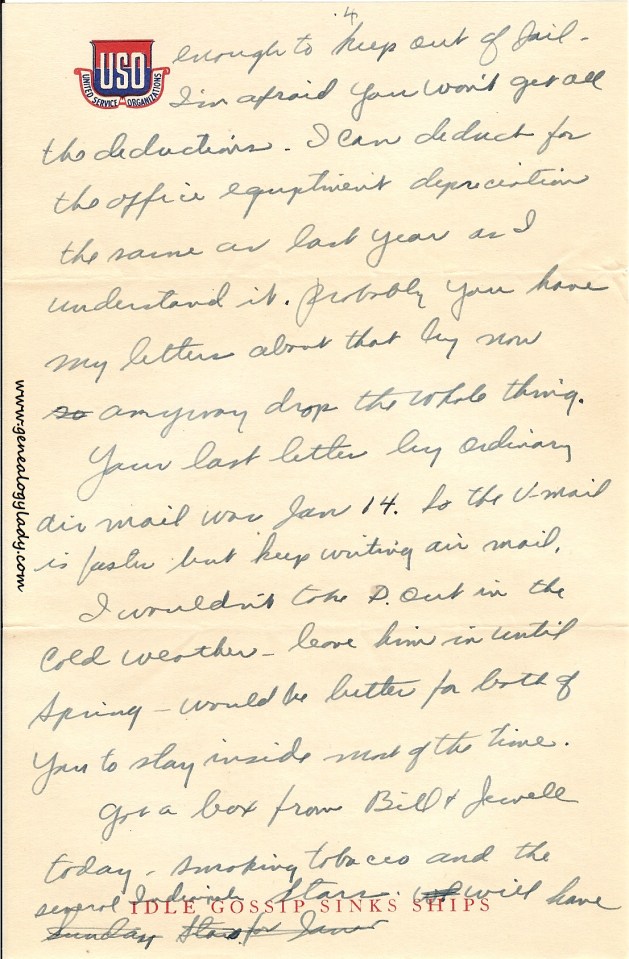 .4.
USO
UNITED SERVICE ORGANIZATIONS
enough to keep out of Jail -
I'm afraid you won't get all
the deductions. I can deduct for
the office equiptment depreciation
the same as last year as I
understand it. Probably you have
my letters about that by now
so anyway drop the whole thing.
Your last letter by ordinary
air mail was Jan 14. So the V-mail
is faster but keep writing air mail.
I wouldn't take P. out in the
cold weather - leave him in until
Spring - would be better for both of
you to stay inside most of the time.
Got a box from Bill & Jewell
today - smoking tobacco and the
several Stars. will have
IDLE GOSSIP SINKS SHIPS
Sunday Stars for
www.genealogylady.com